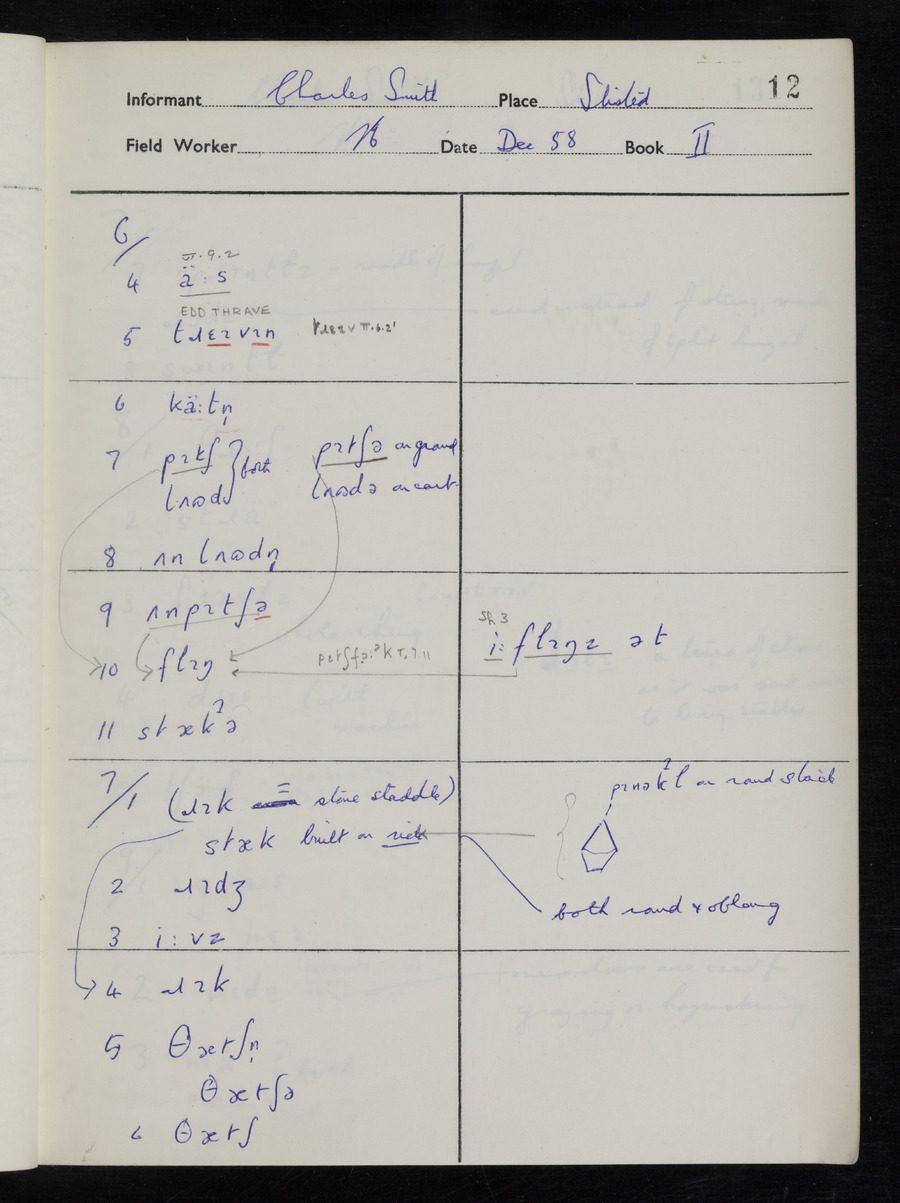 12
Informant Charles Smith Place Stisted
Field Worker N Date Dec 58 Book II
6/
II.9.2
4 ä:s
EDD THRAVE
5 tɹɛɪvɪn
6 kä:tn̩
7 pɪtʃ } both pɪtʃə on ground
lʌʊd lʌʊdə on cart
8 ʌn lʌʊdn̩
9 ʌnpɪtʃə
sh 3
10 flɪŋ i: flɪŋz ət
11 stækˀə
7/1 (ɹɪk = stone staddle) pɪnəkˀl on round stack
stæk built on rick
2 ɹɪdʒ both round & oblong
3 i:vz
4 ɹɪk
5 θætʃn̩
θætʃə
6 θætʃ